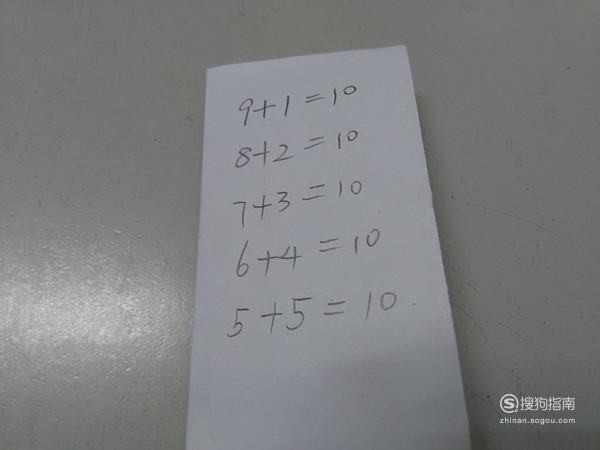 9+1=10
8+2=10
7+3=10
6+4=10
5+5=10.
S 搜狗指南
zhinan.sogou.com